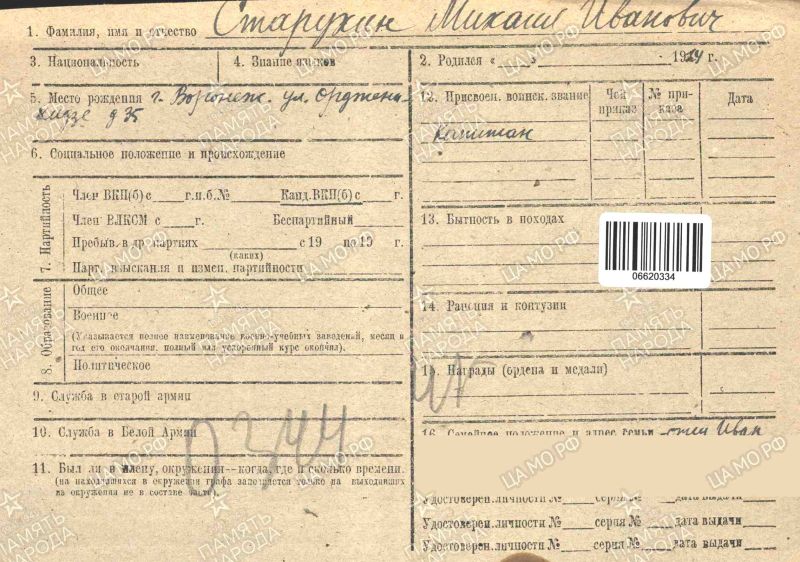 1. Фамилия, имя и отчество Старухин Михаил Иванович
3. Национальность
4. Знание языков
5. Место рождения г. Воронеж. ул. Орджени-
кидзе д 35
6. Социальное положение и происхождение
7. Партийность
Член ВКП(б) с ____ г. п.б. № ____ Канд. ВКП(б) с ____ г.
Член ВЛКСМ с ____ г. Беспартийный
Пребыв. в др. партиях ____ с 19 по 19 г.
(каких)
Парт. взыскания и измен. партийности
8. Образование
Общее
Военное
(Указывается полное наименование военно-учебных заведений, месяц и
год его окончания, полный или ускоренный курс окончил).
Политическое
9. Служба в старой армии
10. Служба в Белой Армии
11. Был ли в плену, окружении—когда, где и сколько времени.
(на находившихся в окружении графа заполняется только на выходивших
из окружения не в составе части).
0344
2. Родился « » 1924 г.
12. Присвоен. воинск. звание
Чей приказ
№ при-каза
Дата
капитан
13. Бытность в походах
06620334
14. Ранения и контузии
15. Награды (ордена и медали)
16. Семейное положение и адрес семьи отец Иван
Удостоверен. личности № ____ серия № ____ дата выдачи
Удостоверен. личности № ____ серия № ____ дата выдачи
Удостоверен. личности № ____ серия № ____ дата выдачи
ЦАМО.РФ
ПАМЯТЬ НАРОДА